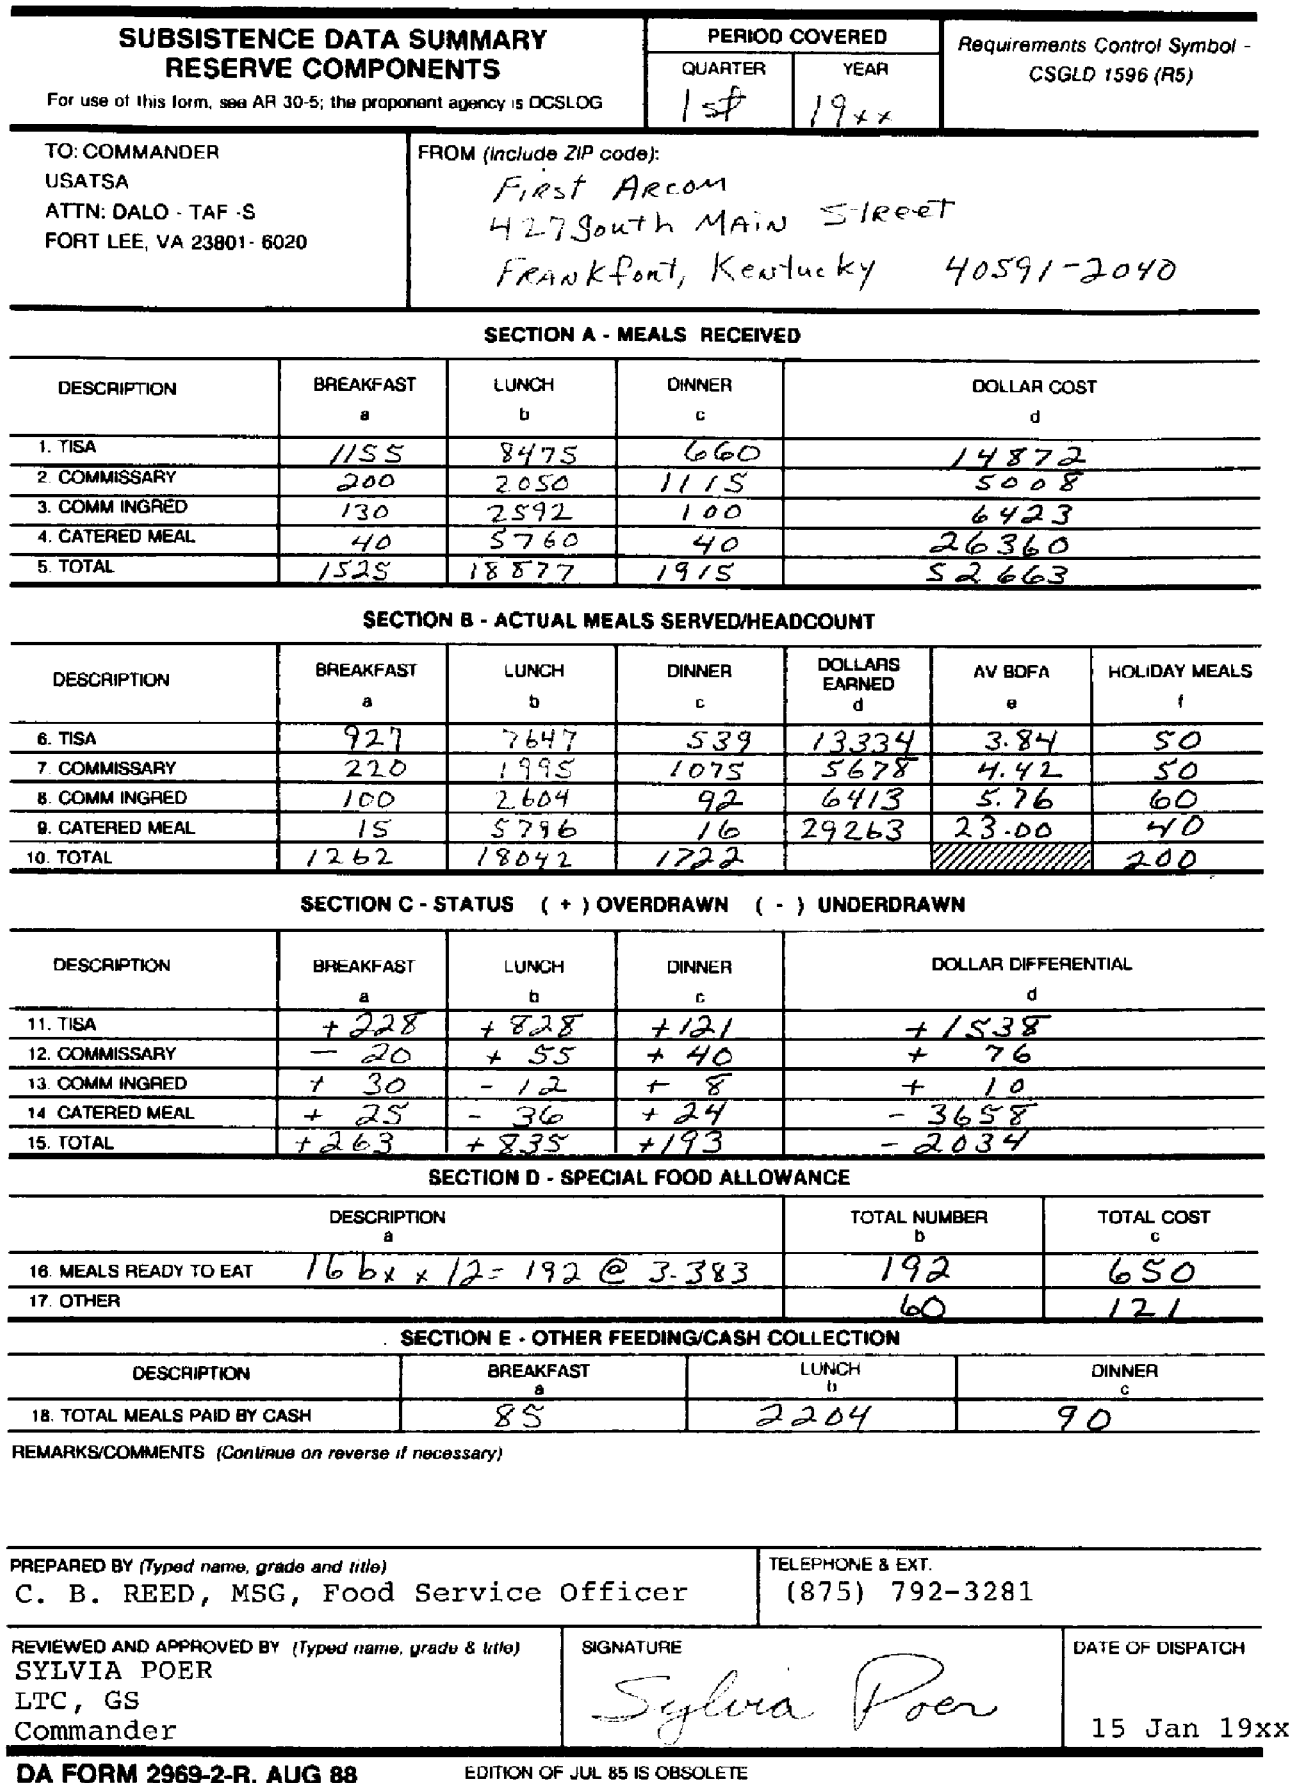 SUBSISTENCE DATA SUMMARY
RESERVE COMPONENTS
For use of this form, see AR 30-5; the proponent agency is DCSLOG
PERIOD COVERED
QUARTER YEAR
1st 19xx
Requirements Control Symbol -
CSGLD 1596 (R5)
TO: COMMANDER
USATSA
ATTN: DALO - TAF -S
FORT LEE, VA 23801- 6020
FROM (Include ZIP code):
First Arcom
427 South Main Street
Frankfort, Kentucky 40591-2040
SECTION A - MEALS RECEIVED
DESCRIPTION BREAKFAST LUNCH DINNER DOLLAR COST
a b c d
1. TISA 1155 8475 660 14872
2. COMMISSARY 200 2050 1115 5008
3. COMM INGRED 130 2592 100 6423
4. CATERED MEAL 40 5760 40 26360
5. TOTAL 1525 18877 1915 52663
SECTION B - ACTUAL MEALS SERVED/HEADCOUNT
DESCRIPTION BREAKFAST LUNCH DINNER DOLLARS EARNED AV BDFA HOLIDAY MEALS
a b c d e f
6. TISA 927 7647 539 13334 3.84 50
7. COMMISSARY 220 1995 1075 5678 4.42 50
8. COMM INGRED 100 2604 92 6413 5.76 60
9. CATERED MEAL 15 5796 16 29263 23.00 40
10. TOTAL 1262 18042 1722 200
SECTION C - STATUS ( + ) OVERDRAWN ( - ) UNDERDRAWN
DESCRIPTION BREAKFAST LUNCH DINNER DOLLAR DIFFERENTIAL
a b c d
11. TISA +228 +828 +121 +1538
12. COMMISSARY - 20 + 55 + 40 + 76
13. COMM INGRED + 30 - 12 + 8 + 10
14 CATERED MEAL + 25 - 36 + 24 - 3658
15. TOTAL +263 +835 +193 - 2034
SECTION D - SPECIAL FOOD ALLOWANCE
DESCRIPTION TOTAL NUMBER TOTAL COST
a b c
16. MEALS READY TO EAT 16 bx x 12 = 192 @ 3.383 192 650
17. OTHER 60 121
SECTION E - OTHER FEEDING/CASH COLLECTION
DESCRIPTION BREAKFAST LUNCH DINNER
a b c
18. TOTAL MEALS PAID BY CASH 85 2204 90
REMARKS/COMMENTS (Continue on reverse if necessary)
PREPARED BY (Typed name, grade and title)
C. B. REED, MSG, Food Service Officer
TELEPHONE & EXT.
(875) 792-3281
REVIEWED AND APPROVED BY (Typed name, grade & title)
SYLVIA POER
LTC, GS
Commander
SIGNATURE
Sylvia Poer
DATE OF DISPATCH
15 Jan 19xx
DA FORM 2969-2-R, AUG 88 EDITION OF JUL 85 IS OBSOLETE